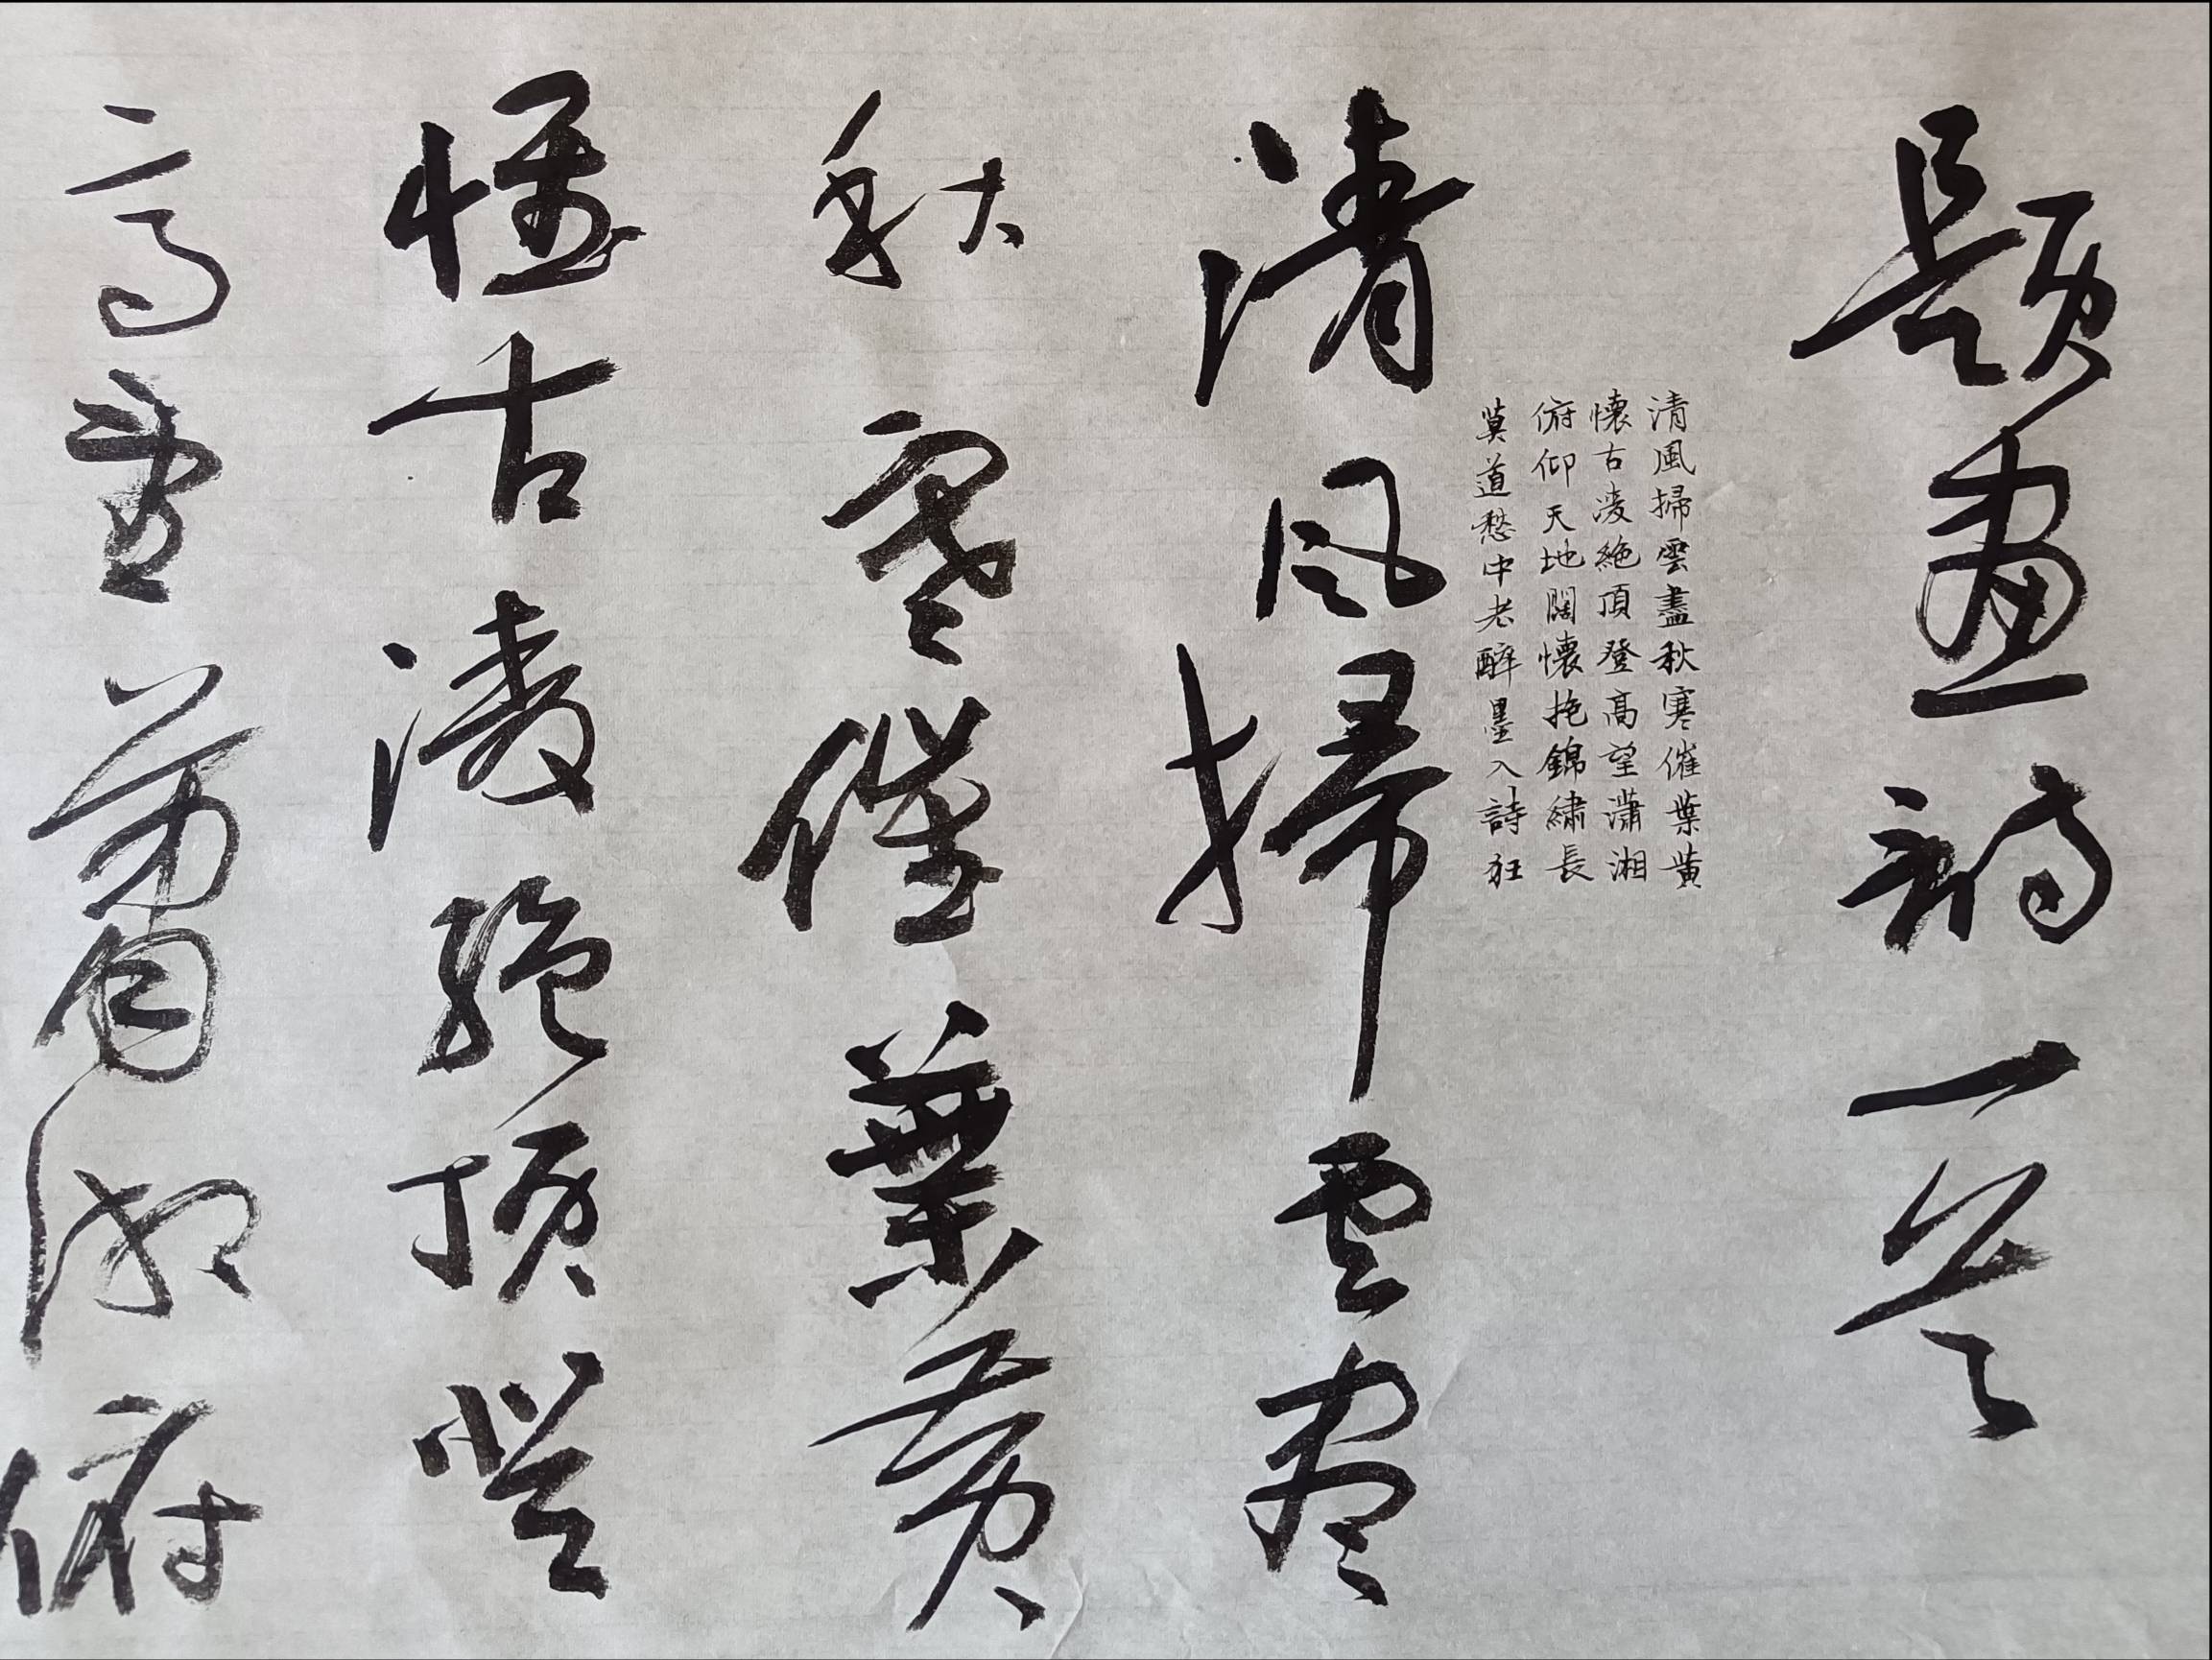 題畫詩一首
清風掃雲盡秋寒催葉黃
懷古凌絶頂登高望瀟湘
俯仰天地闊懷抱錦繡長
莫道愁中老醉墨入詩狂
清风掃雲尽
秋寒催葉黄
懷古凌絶頂登
高望蕭湘俯